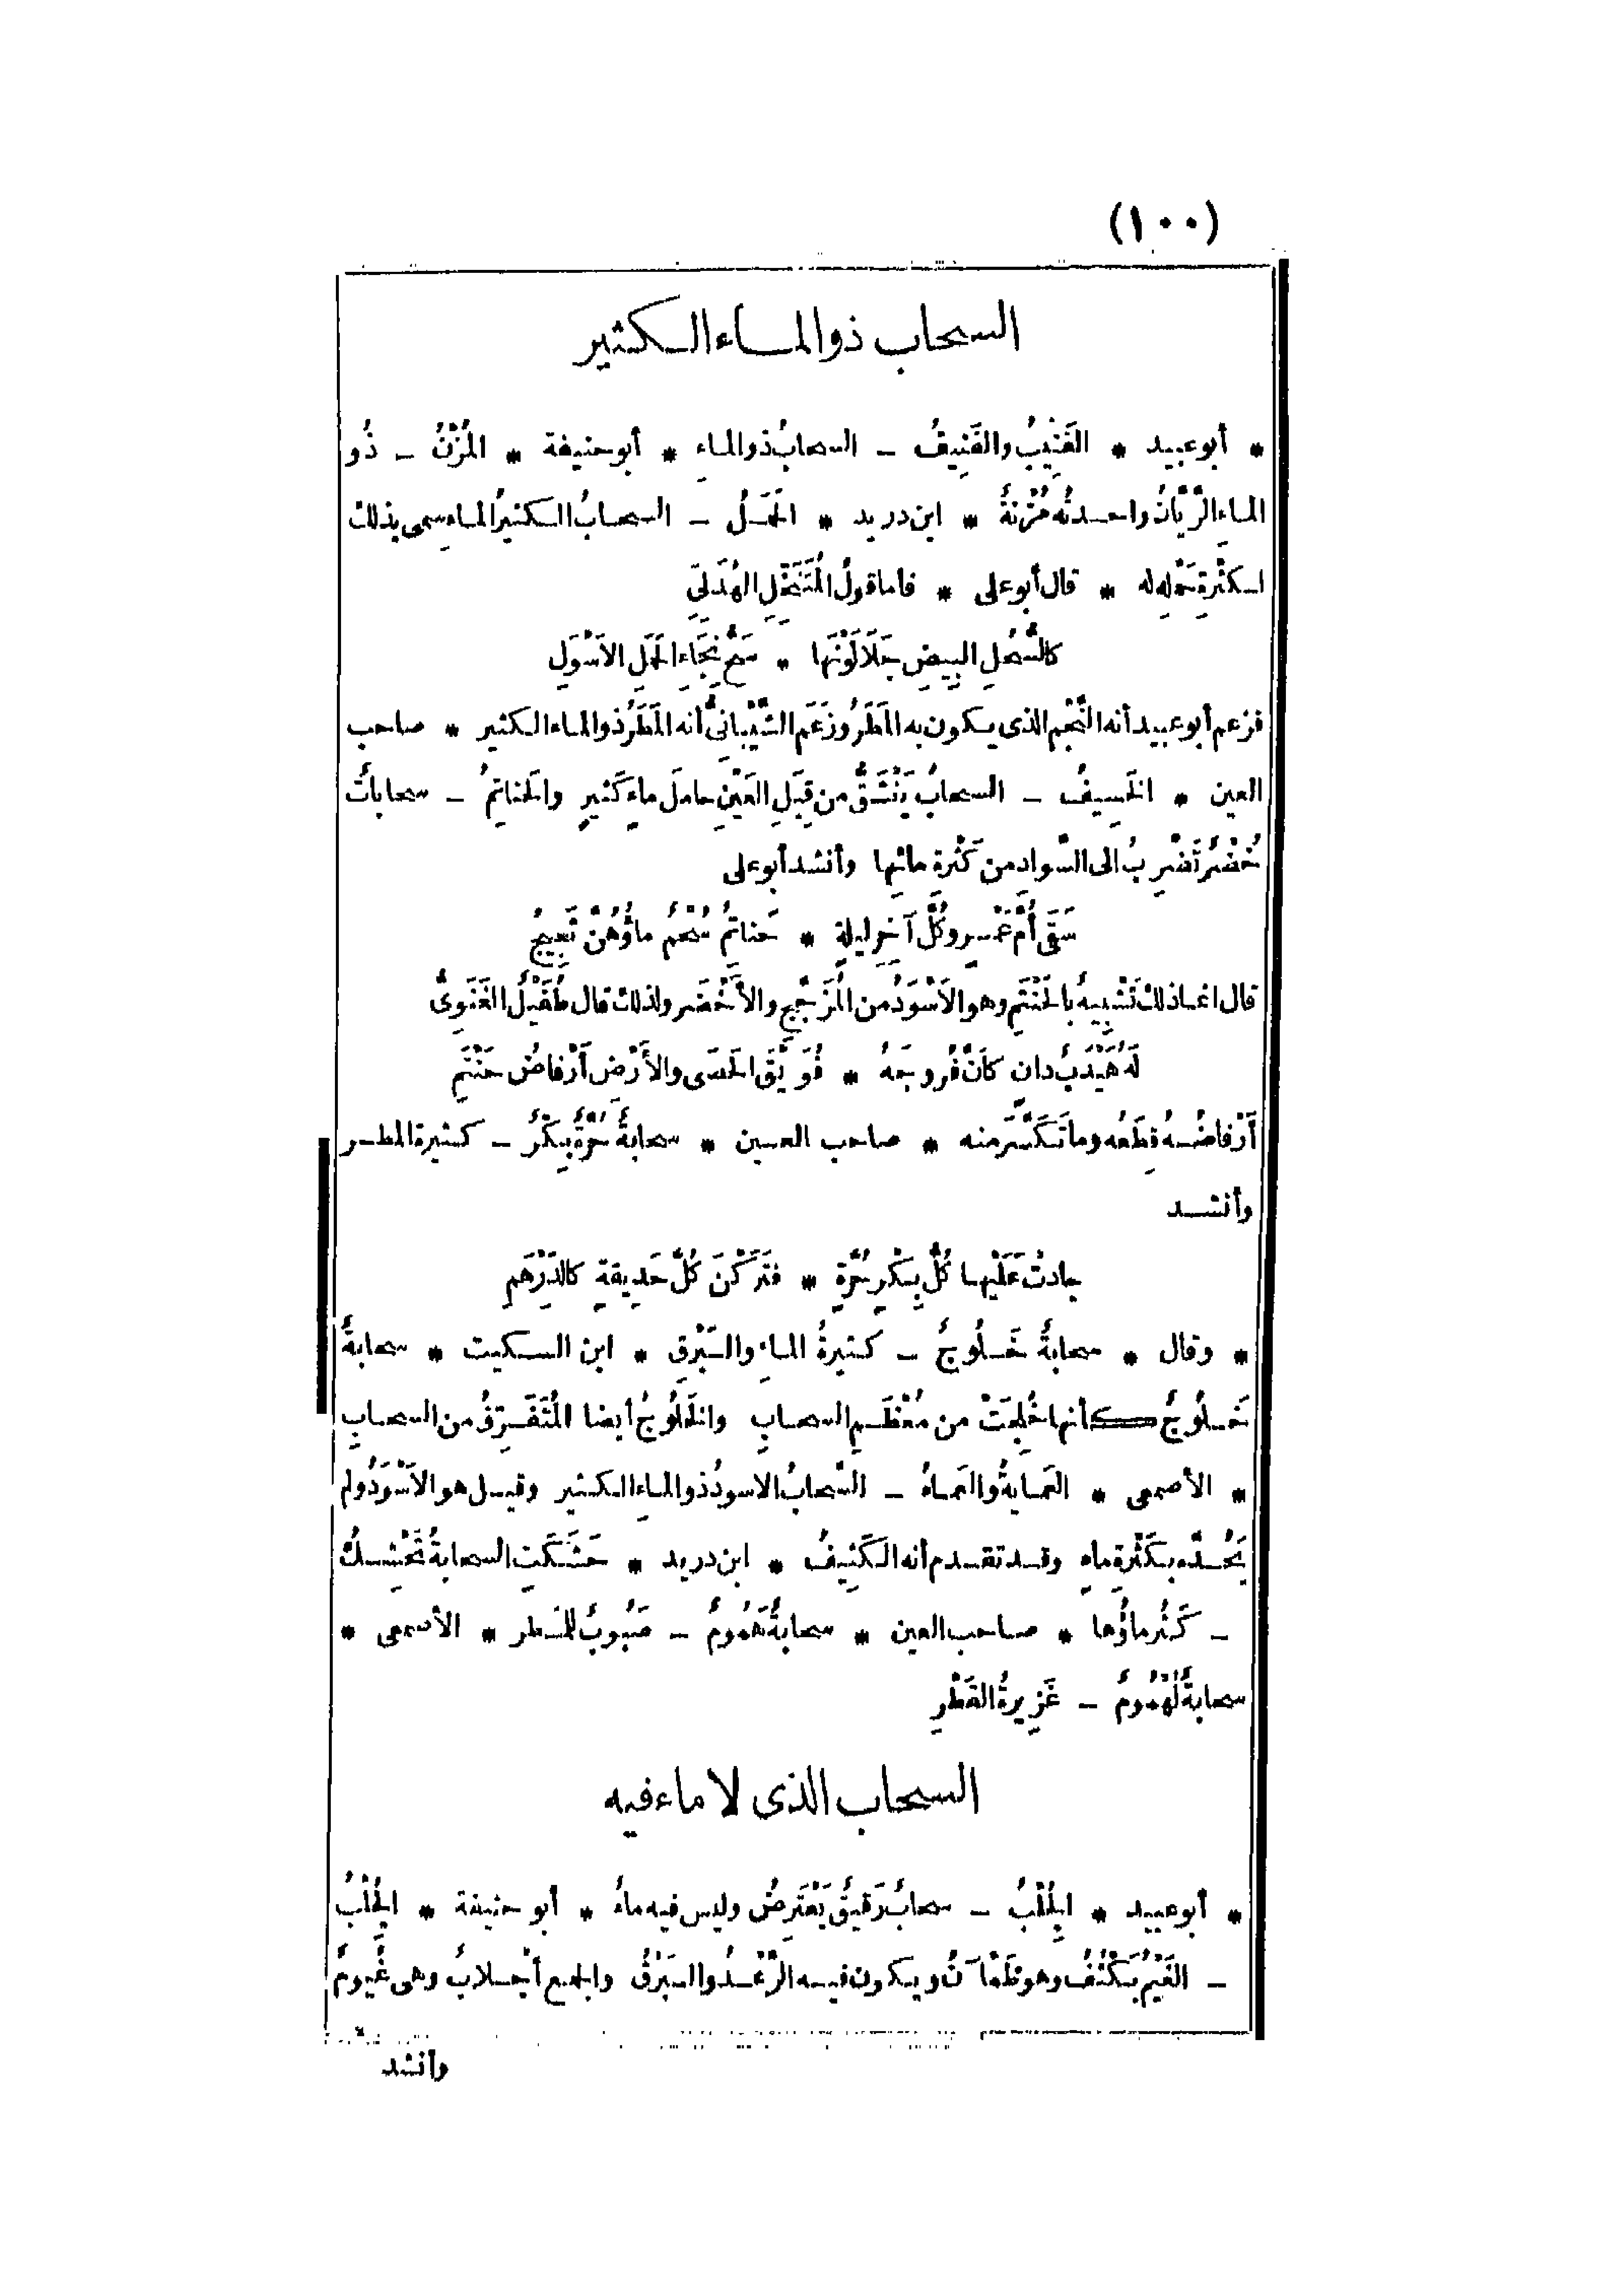 (١٠٠)
السحاب ذو الماء الكثير
* أبو عبيد * القَنِيبُ والقَنِيفُ ـ السحابُ ذو الماءِ * أبو حنيفة * المُزْنُ ـ ذُو
الماءِ الرَّيَّانُ واحدتُه مُزْنةٌ * ابن دريد * الحَمَلُ ـ السحابُ الكثيرُ الماءِ سمى بذلك
لكَثْرةِ حَمْلِه له * قال أبو على * فأما قولُ المُتَنَخِّلِ الهُذَلِىِّ
كالسُّحُلِ البِيضِ جَلَا لَوْنَها * سَحُّ نِجَاءِ الحَمَلِ الأَسْوَلِ
فزعم أبو عبيد أنه النَّجْم الذى يكون به المَطَر وزَعَم الشَّيْبانىُّ أنه المَطَرُ ذو الماء الكثير * صاحب
العين * الخَسِيفُ ـ السحابُ يَنْشَقُّ من قِبَلِ العَيْنِ حامل ماءٍ كَثيرٍ والحَناتِمُ ـ سحاباتٌ
خُضْرٌ تَضْرِبُ الى السَّواد من كَثْرة مائِها وأنشد أبو على
سَقَى أُمَّ عَمْرٍو كُلَّ آخِرِ ليلةٍ * حَناتِمُ سُحْمٌ ماؤُهُنَّ ثَجِيجُ
قال انما ذلك تَشْبِيهٌ بالحَنْتَمِ وهو الأَسْوَدُ من المُزَجَّجِ والأَخْضَر ولذلك قال طُفَيْلٌ الغَنَوِىُّ
لَهُ هَيْدَبٌ دانٍ كَانَّ فُروجَهُ * فُوَيْقَ الحَصَى والأَرْضِ أَرْفاضُ حَنْتَمِ
أَرْفاضُه قِطَعُه وما تَكَسَّر منه * صاحب العين * سحابةٌ حُرَّةٌ بِكْرٌ ـ كثيرة المطر
وأنشد
جادتْ عَلَيْها كُلُّ بِكْرٍ حُرَّةٍ * فتَرَكْنَ كُلَّ حَدِيقةٍ كالدِّرْهَمِ
* وقال * سحابةٌ خَلُوجٌ ـ كثيرةُ الماءِ والبَرْقِ * ابن السكيت * سحابةٌ
خَلُوجٌ كأنها خُلِجَتْ من مُعْظَمِ السحابِ والخَلُوجُ أيضا المُتَفَرِّقُ من السحابِ
* الأصمعى * العَمَايةُ والعَماءُ ـ السَّحابُ الاسودُ ذو الماءِ الكثير وقيل هو الأَسْوَدُ ولم
يَحُدَّه بكَثْرةِ ماءٍ وقد تقدم أنه الكَثِيفُ * ابن دريد * حَشَكَتِ السحابةُ تَحْشِكُ
ـ كَثُر ماؤُها * صاحب العين * سحابةٌ هَمُومٌ ـ صَبُوبٌ للمَطر * الأصمعى *
سحابةٌ لُهْمُومٌ ـ غَزِيرةُ القَطْرِ
السحاب الذى لا ماء فيه
* أبو عبيد * الجُلْبُ ـ سحابٌ رَقيقٌ يَعْتَرِضُ وليس فيه ماءٌ * أبو حنيفة * الجُلْبُ
ـ الغَيْمُ يَكْثُفُ وهو ظَمْآنُ ويكون فيه الرَّعْدُ والبَرْقُ والجمع أَجْلابٌ وهى غُيومٌ
وأنشد